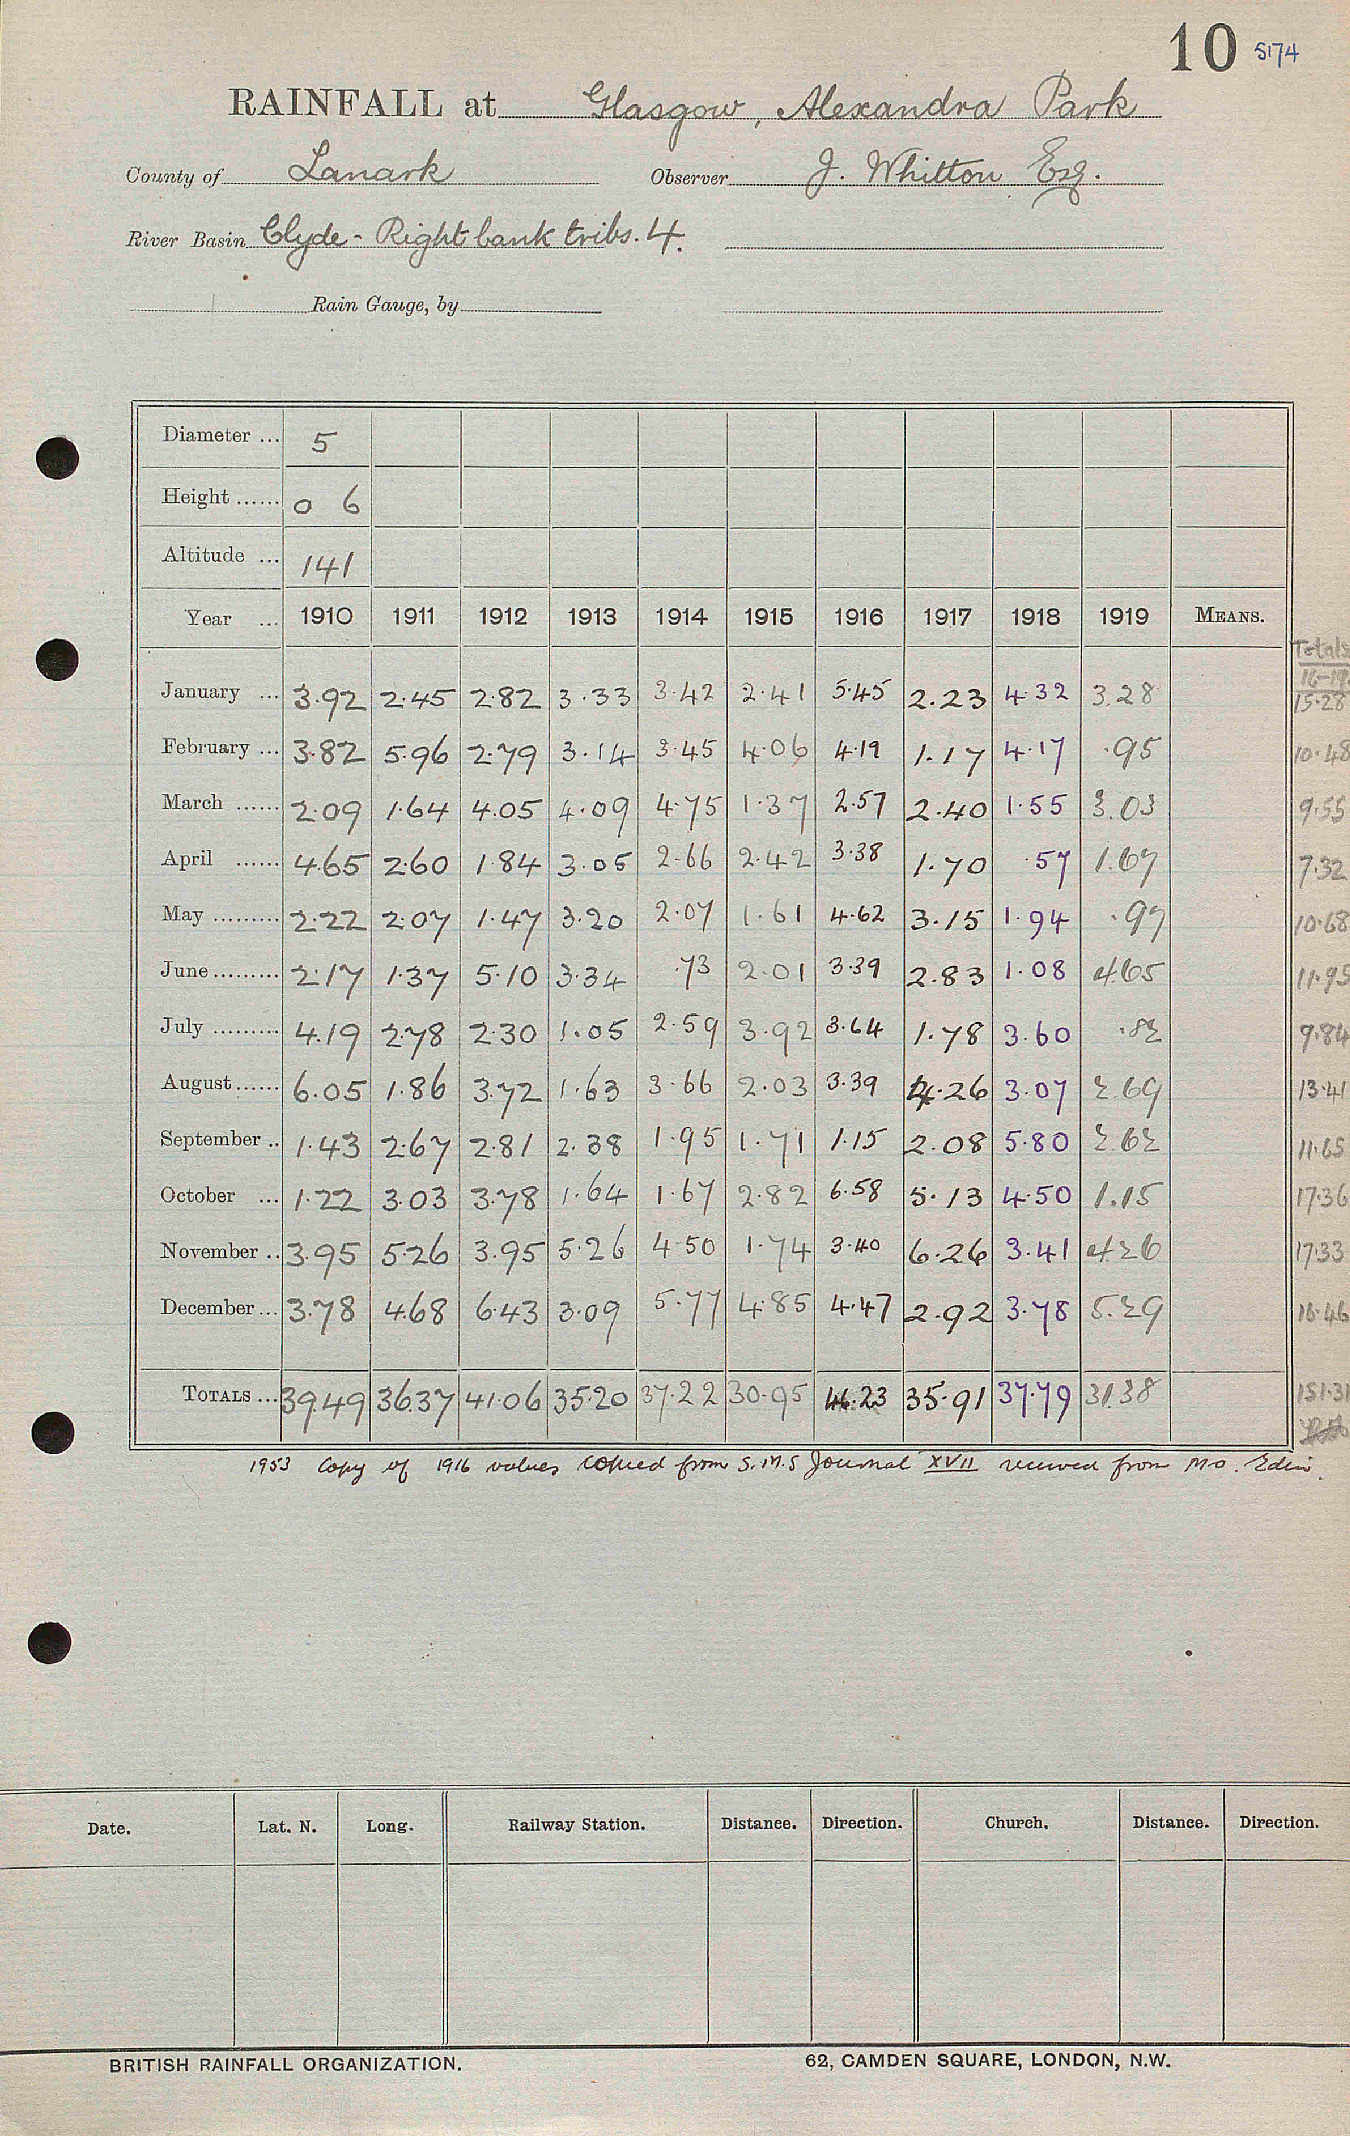 10 5174
RAINFALL at Glasgow, Alexandra Park
County of Lanark Observer J. Whitton Esq.
River Basin Clyde - Right bank tribs. 4.
Rain Gauge, by
Diameter ... 5
Height ...... 0 6
Altitude ... 141
Year ... 1910 1911 1912 1913 1914 1915 1916 1917 1918 1919 MEANS. Totals 16-19
January ... 3.92 2.45 2.82 3.33 3.42 2.41 5.45 2.23 4.32 3.28 15.28
February ... 3.82 5.96 2.79 3.14 3.45 4.06 4.19 1.17 4.17 .95 10.48
March ...... 2.09 1.64 4.05 4.09 4.75 1.37 2.57 2.40 1.55 3.03 9.55
April ...... 4.65 2.60 1.84 3.05 2.66 2.42 3.38 1.70 .57 1.67 7.32
May ......... 2.22 2.07 1.47 3.20 2.07 1.61 4.62 3.15 1.94 .97 10.68
June ......... 2.17 1.37 5.10 3.34 .73 2.01 3.39 2.83 1.08 4.65 11.95
July .......... 4.19 2.78 2.30 1.05 2.59 3.92 3.64 1.78 3.60 .82 9.84
August ...... 6.05 1.86 3.72 1.63 3.66 2.03 3.39 4.26 3.07 2.69 13.41
September .. 1.43 2.67 2.81 2.38 1.95 1.71 1.15 2.08 5.80 2.62 11.65
October ... 1.22 3.03 3.78 1.64 1.67 2.82 6.58 5.13 4.50 1.15 17.36
November .. 3.95 5.26 3.95 5.26 4.50 1.74 3.40 6.26 3.41 4.26 17.33
December ... 3.78 4.68 6.43 3.09 5.77 4.85 4.47 2.92 3.78 5.29 16.46
TOTALS ... 39.49 36.37 41.06 35.20 37.22 30.95 46.23 35.91 37.79 31.38 151.31
1953 Copy of 1916 values copied from S.M.S Journal XVII received from M.O. Edin.
Date. Lat. N. Long. Railway Station. Distance. Direction. Church. Distance. Direction.
BRITISH RAINFALL ORGANIZATION. 62, CAMDEN SQUARE, LONDON, N.W.